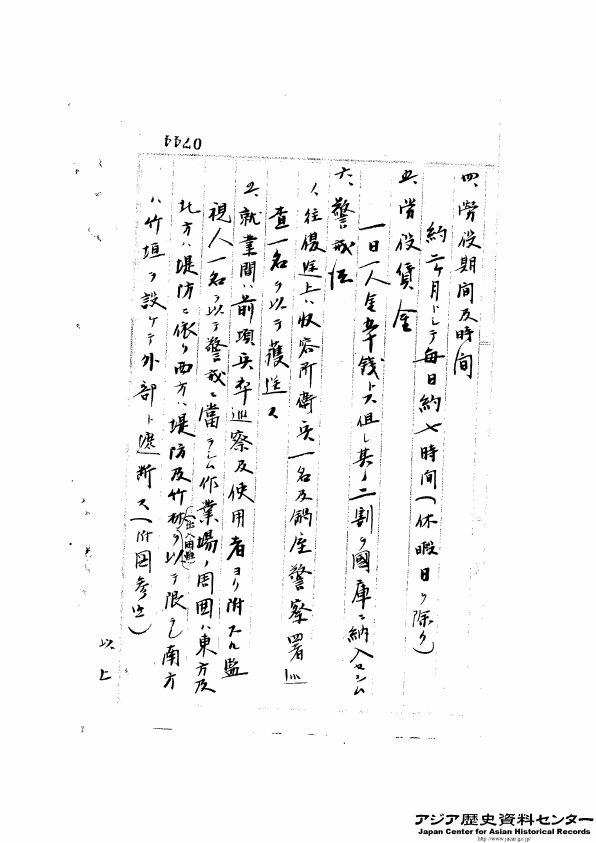 0744
四、勞役期間及時間
約二ヶ月トシテ每日約七時間(休暇日ヲ除ク)
五、勞役賃金
一日一人金五十錢トス但シ其ノ二割ヲ國庫ニ納入セシム
六、警戒法
1、往復途上ハ收容所衞兵一名及鍋屋警察署巡
査一名ヲ以テ護送ス
2、就業間ハ前項兵卒巡察及使用者ヨリ附スル監
視人一名ヲ以テ警戒ニ當ラシム作業場ノ周圍ハ東方及
北方ハ堤防ニ依リ西方ハ堤防及竹林(出入困難)ヲ以テ限ラレ南方
ハ竹垣ヲ設ケテ外部ト遮斷ス(附図参照)
以上
アジア歴史資料センター
Japan Center for Asian Historical Records
http://www.jacar.go.jp/